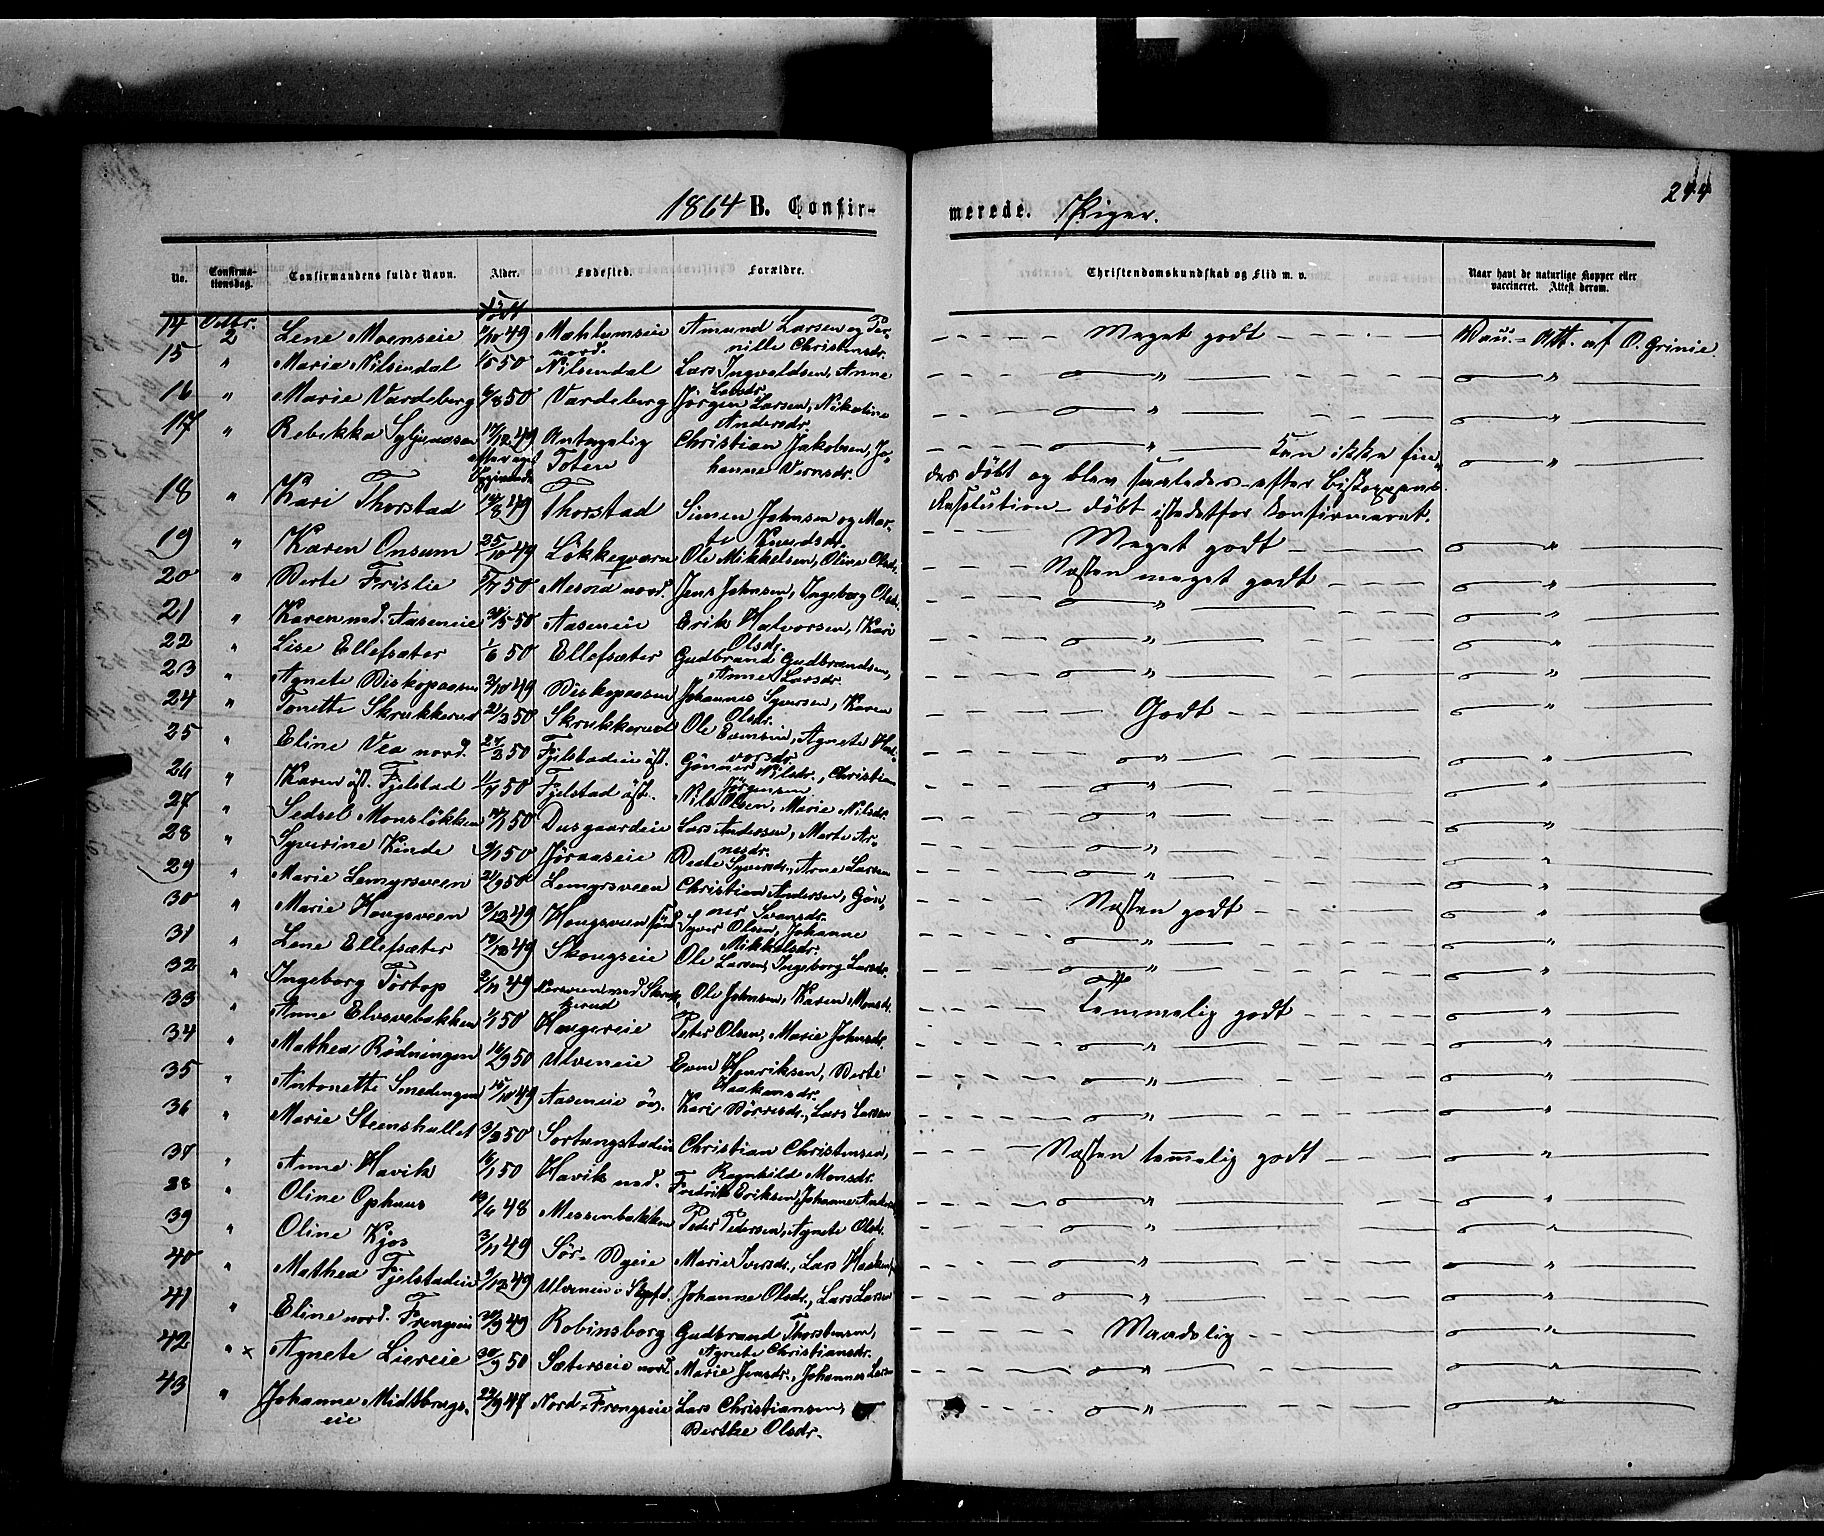 1864 B. Confir-
merede. Piger.
244
No. Confirma-tionsdag. Confirmandens fulde Navn. Alder. Fødested. Forældre. Christendomskundskab og Flid m. v. Naar havt de naturlige Kopper eller vaccineret. Attest derom.
14 Octbr. 2 Lene Moenseie 49 Mæhlumseie nord. Amund Larsen og Per-nille Christensdr. Meget godt Vac. Att. af O. Grinie
15 " Maria Nilsendal 50 Nilsendal Lars Ingvaldsen, Anne Larsdr. " "
16 " Marie Vardeberg 50 Vardeberg Jørgen Larsen, Nikoline Andersdr. " "
17 " Rebekka 49 Antagelig Toten Christian Jakobsen, Jo-hanne Iversdr. " Kan ikke fin-
des døbt og blev saaledes efter Biskoppens
Resolution døbt istedetfor konfirmeret. "
18 " Kari Thorstad 14/8 49 Thorstad Simen Johnsen og Mar-te Knudsdr. Meget godt
19 " Karen Onsum 25/10 49 Løkkeqværn Ole Mikkelsen, Oline Olsdr. Næsten meget godt "
20 " Berte Frislie 50 Mesna nord. Jens Johnsen, Ingeborg Olsdr. " "
21 " Karen ned. Aaseneie 50 Aaseneie Erik Halvorsen, Kari Olsdr. " "
22 " Lise Ellefsæter 1/6 50 Ellefsæter Gudbrand Gudbrandsen, Anne Larsdr. " "
23 " Agnete Biskopaasen 49 Biskopaasen Johannes Syversen, Karen Olsdr. Godt "
24 " Tonette Skrukkerud 21/3 50 Skrukkerud Ole Evensen, Agnete Hal-vorsdr. " "
25 " Eline Vea nord. 27/2 50 Fjelstadeie øst. Gønner Nilsdr., Christian Jørgensen " "
26 " Karen øst. Fjelstad 50 Fjelstad øst. Nils Olsen, Marie Nilsdr. " "
27 " Sedsel Monsløkken 50 Dusgaardeie Lars Andersen, Marte Ar-nesdr. " "
28 " Syverine Kinde 50 Jøraaseie Beate Syversdr., Arne Larsen " "
29 " Marie Lemyrsveen 50 Lemyrsveen Christian Andersen, Gøn-ner Svensdr. Næsten godt "
30 " Marie Haugsveen 3/12 49 Haugsveen Syver Olsen, Johanne Mikkelsdr. " "
31 " Lene Ellefsæter 49 Skougseie Ole Larsen, Ingeborg Larsdr. " "
32 " Ingeborg Tortop 49 Skruk-kerud Ole Johnsen, Karen Monsdr. Temmelig godt "
33 " Anne Elvsvebakken 50 Haugereie Peter Olsen, Marie Johnsdr. " "
34 " Mathea Rødningen 50 Ulveneie Even Henriksen, Berte Haakensdr. " "
35 " Antonette Smedingen 49 Aaseneie øv. Kari Børresdr., Lars Larsen " "
36 " Marie Steenshallet 50 Sortungstadeie Christian Christensen, Ragnhild Monsdr. Næsten temelig godt "
37 " Anne Havik 50 Havik ned. Fredrik Eriksen, Johanne " "
38 " Oline Ophuus 48 Messenbakken Peder Pedersen, Agnete Olsdr. " "
39 " Oline Kjos 3/11 49 Sør-Byeie Marie Iversdr., Lars " "
40 " Mathea Fjelstadeie 49 Ulveneie i Johanne Olsdr., Lars Larsen " "
41 " Eline nord. Frengseie 49 Robinsborg Gudbrand Thorstensen, Agnete Christiansdr. Maadelig "
42 " x Agnete Liereie 50 Sæterseie nord. Marie Jensdr., Johannes Larsen " "
43 " Johanne Midtbrugs-eie 47 Nord-Frengseie Lars Christiansen, Berthe Olsdr. " "